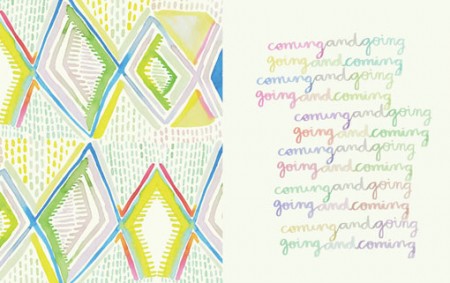 comingandgoing
goingandcoming
comingandgoing
goingandcoming
comingandgoing
goingandcoming
comingandgoing
goingandcoming
comingandgoing
goingandcoming
comingandgoing
goingandcoming